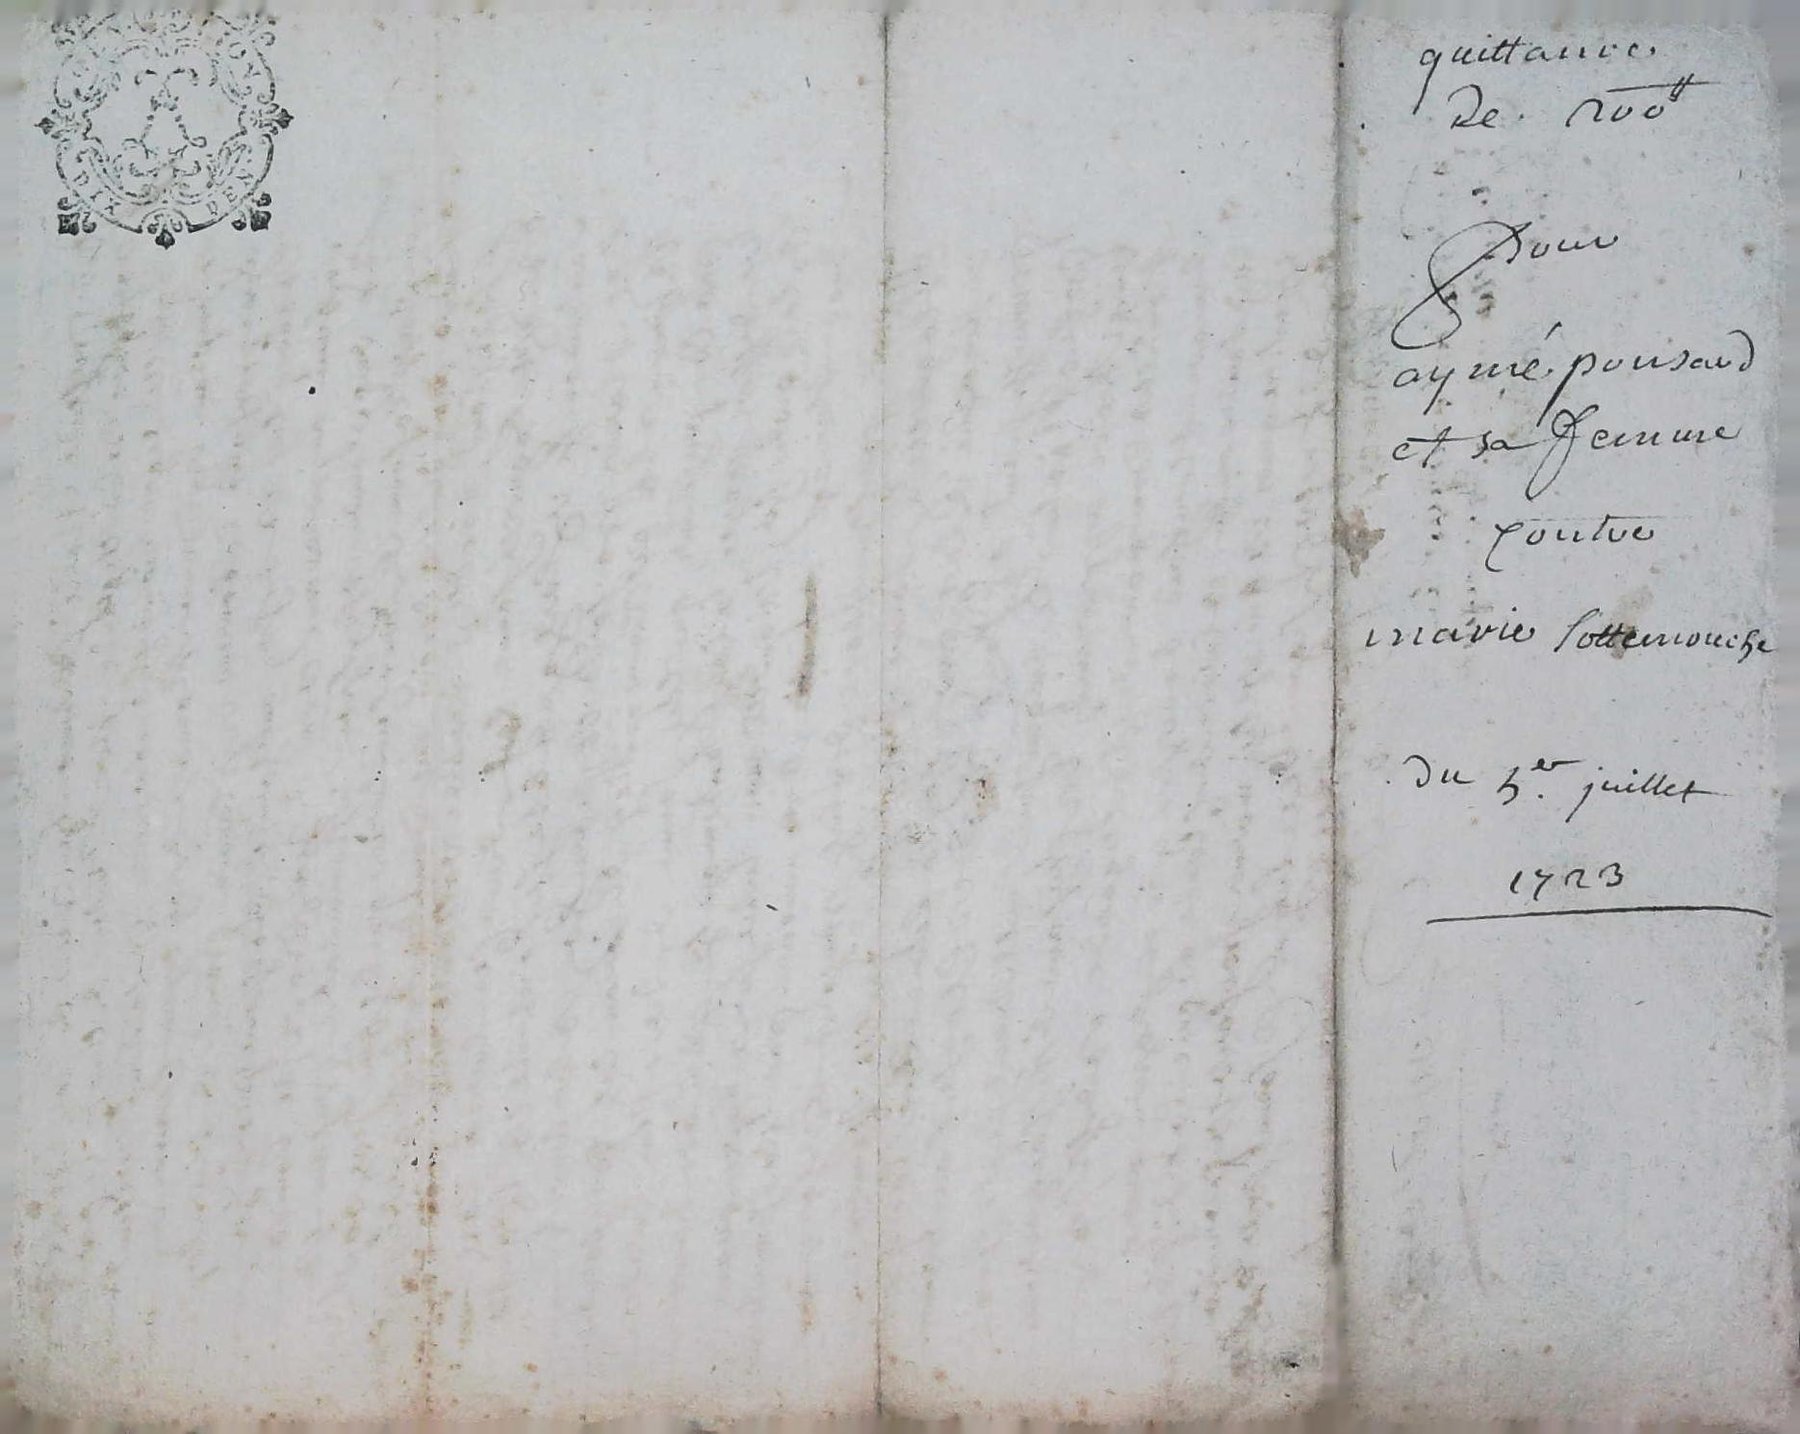 DIX DEN
quittance
de 200 ₶
pour
aymé ponsard
et sa femme
contre
marie sottemouche
du 5.er juillet
1723